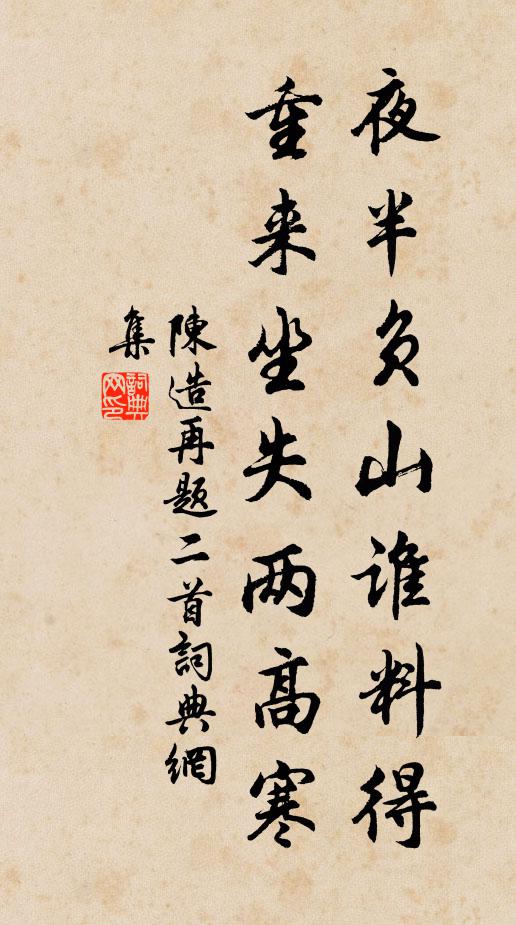 夜半负山谁料得
重来坐失两高寒
陳造再题二首詞典網
集
詞典
网印